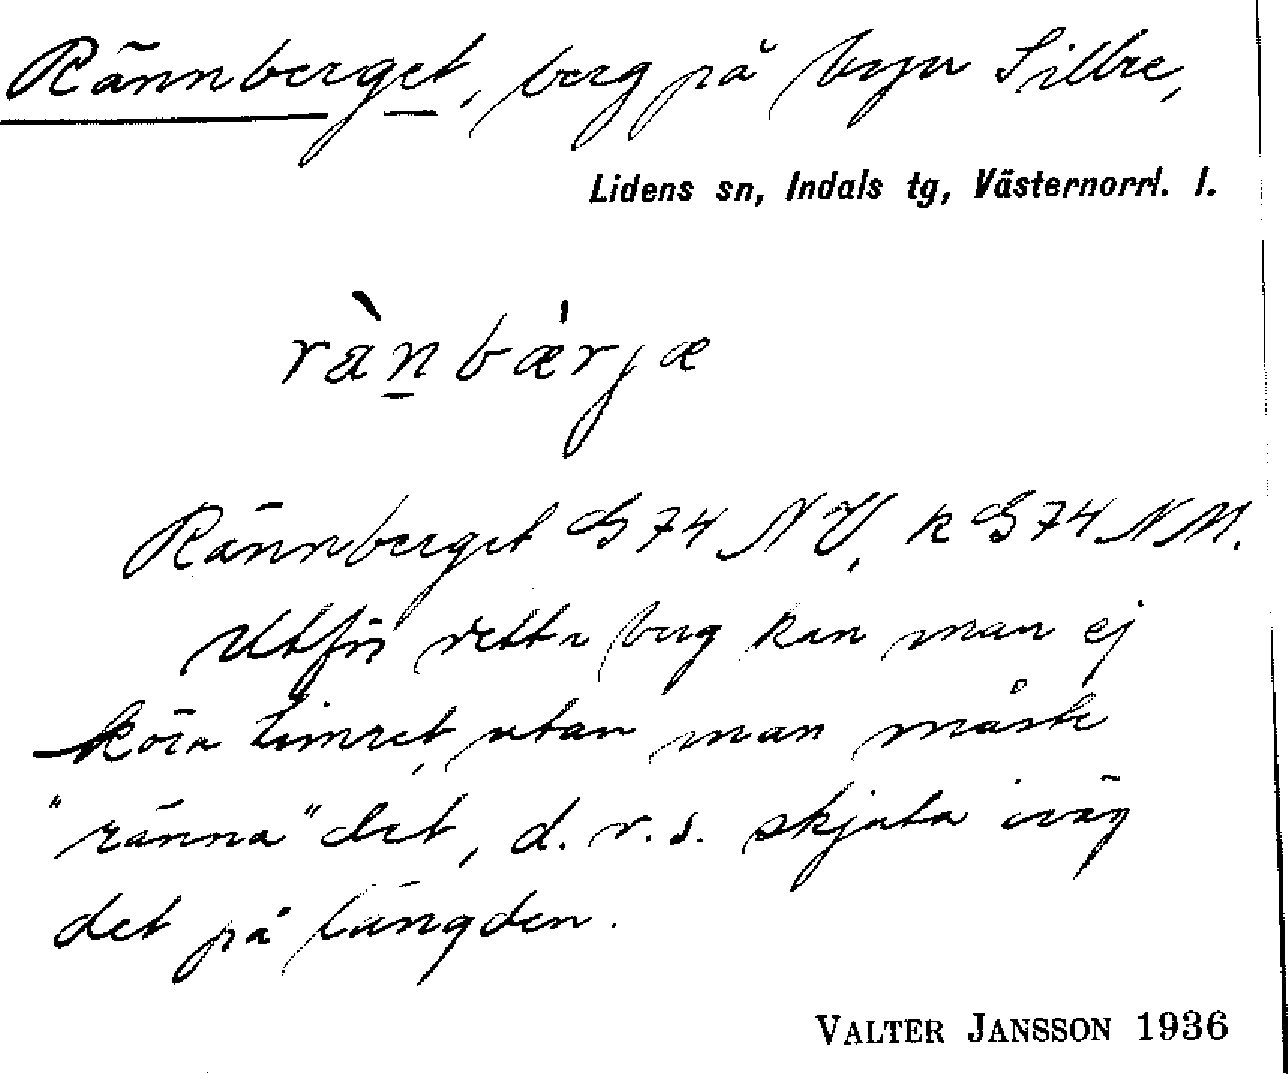 Rännberget, berg på byn Sillre,
Lidens sn, Indals tg, Västernorrl. l.
rànbærjæ
Rännberget G 74 NV, k G 74 NM.
Utför detta berg kan man ej
köra timret, utan man måste
"ränna" det, d. v. s. skjuta iväg
det på längden.
VALTER JANSSON 1936